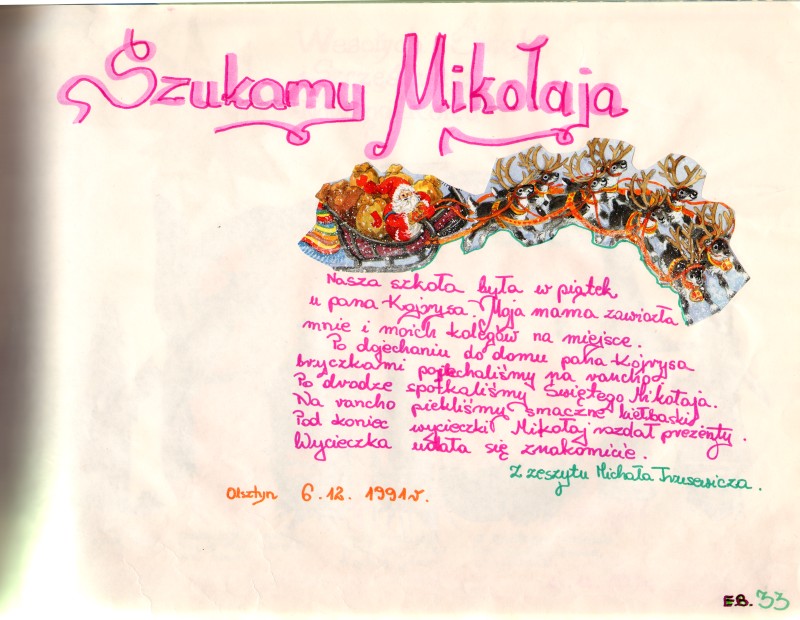 Szukamy Mikołaja
Nasza szkoła była w piątek
u pana Kojrysa. Moja mama zawiozła
mnie i moich kolegów na miejsce.
Po dojechaniu do domu pana Kojrysa
bryczkami pojechaliśmy na rancho.
Po drodze spotkaliśmy Świętego Mikołaja.
Na rancho piekliśmy smaczne kiełbaski.
Pod koniec wycieczki Mikołaj rozdał prezenty.
Wycieczka udała się znakomicie.
Z zeszytu Michała
Olsztyn 6.12.1991r.
E.B. 33